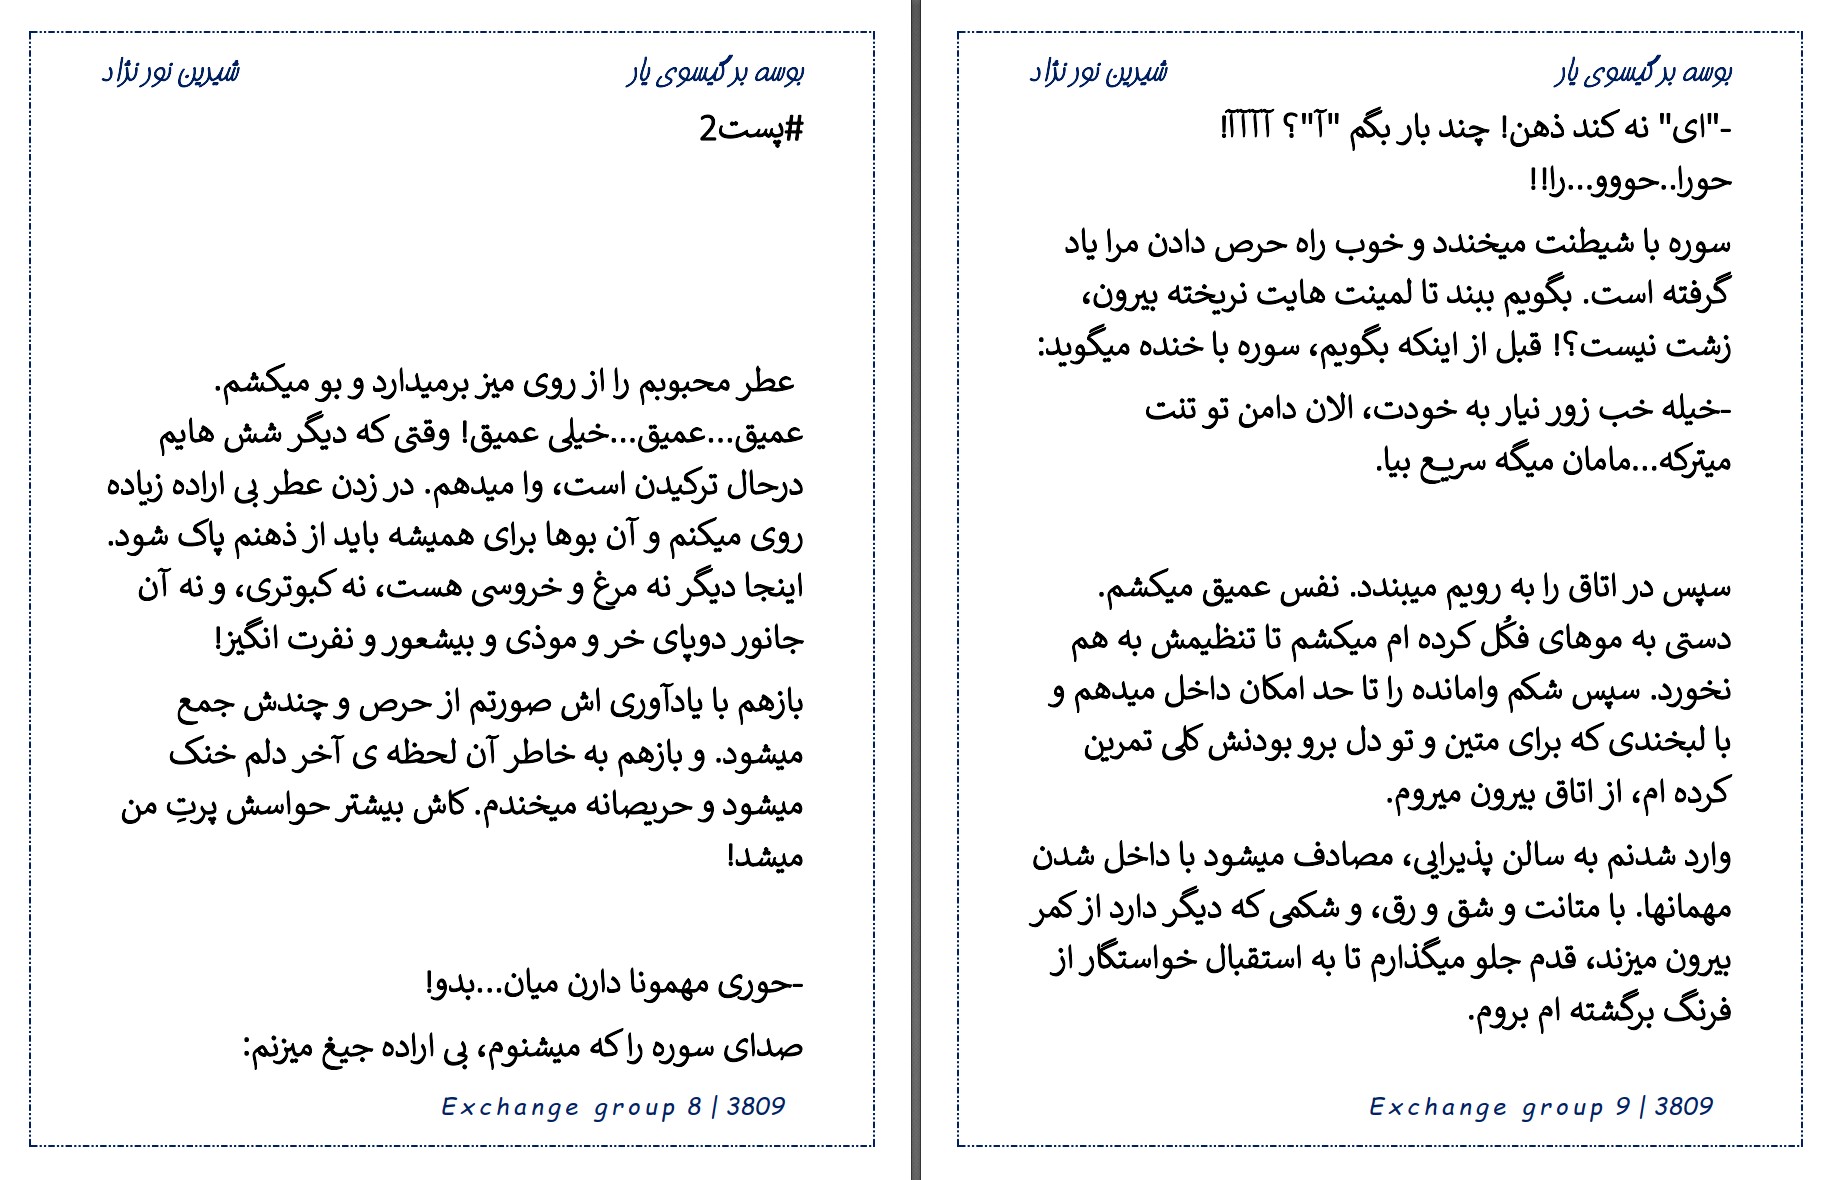 بوسه بر گیسوی یار
شیرین نور نژاد
#پست2
عطر محبوبم را از روی میز برمیدارد و بو میکشم.
عمیق...عمیق...خیلی عمیق! وقتی که دیگر شش هایم
درحال ترکیدن است، وا میدهم. در زدن عطر بی اراده زیاده
روی میکنم و آن بوها برای همیشه باید از ذهنم پاک شود.
اینجا دیگر نه مرغ و خروسی هست، نه کبوتری، و نه آن
جانور دوپای خر و موذی و بیشعور و نفرت انگیز!
بازهم با یادآوری اش صورتم از حرص و چندش جمع
میشود. و بازهم به خاطر آن لحظه ی آخر دلم خنک
میشود و حریصانه میخندم. کاش بیشتر حواسش پرتِ من
میشد!
-حوری مهمونا دارن میان...بدو!
صدای سوره را که میشنوم، بی اراده جیغ میزنم:
Exchange group 8 | 3809
بوسه بر گیسوی یار
شیرین نور نژاد
-"ای" نه کند ذهن! چند بار بگم "آ"؟ آآآآآ!
حورا..حووو...را!!
سوره با شیطنت میخندد و خوب راه حرص دادن مرا یاد
گرفته است. بگویم ببند تا لمینت هایت نریخته بیرون،
زشت نیست؟! قبل از اینکه بگویم، سوره با خنده میگوید:
-خیله خب زور نیار به خودت، الان دامن تو تنت
میترکه...مامان میگه سریع بیا.
سپس در اتاق را به رویم میبندد. نفس عمیق میکشم.
دستی به موهای فکُل کرده ام میکشم تا تنظیمش به هم
نخورد. سپس شکم وامانده را تا حد امکان داخل میدهم و
با لبخندی که برای متین و تو دل برو بودنش کلی تمرین
کرده ام، از اتاق بیرون میروم.
وارد شدنم به سالن پذیرایی، مصادف میشود با داخل شدن
مهمانها. با متانت و شق و رق، و شکمی که دیگر دارد از کمر
بیرون میزند، قدم جلو میگذارم تا به استقبال خواستگار از
فرنگ برگشته ام بروم.
Exchange group 9 | 3809